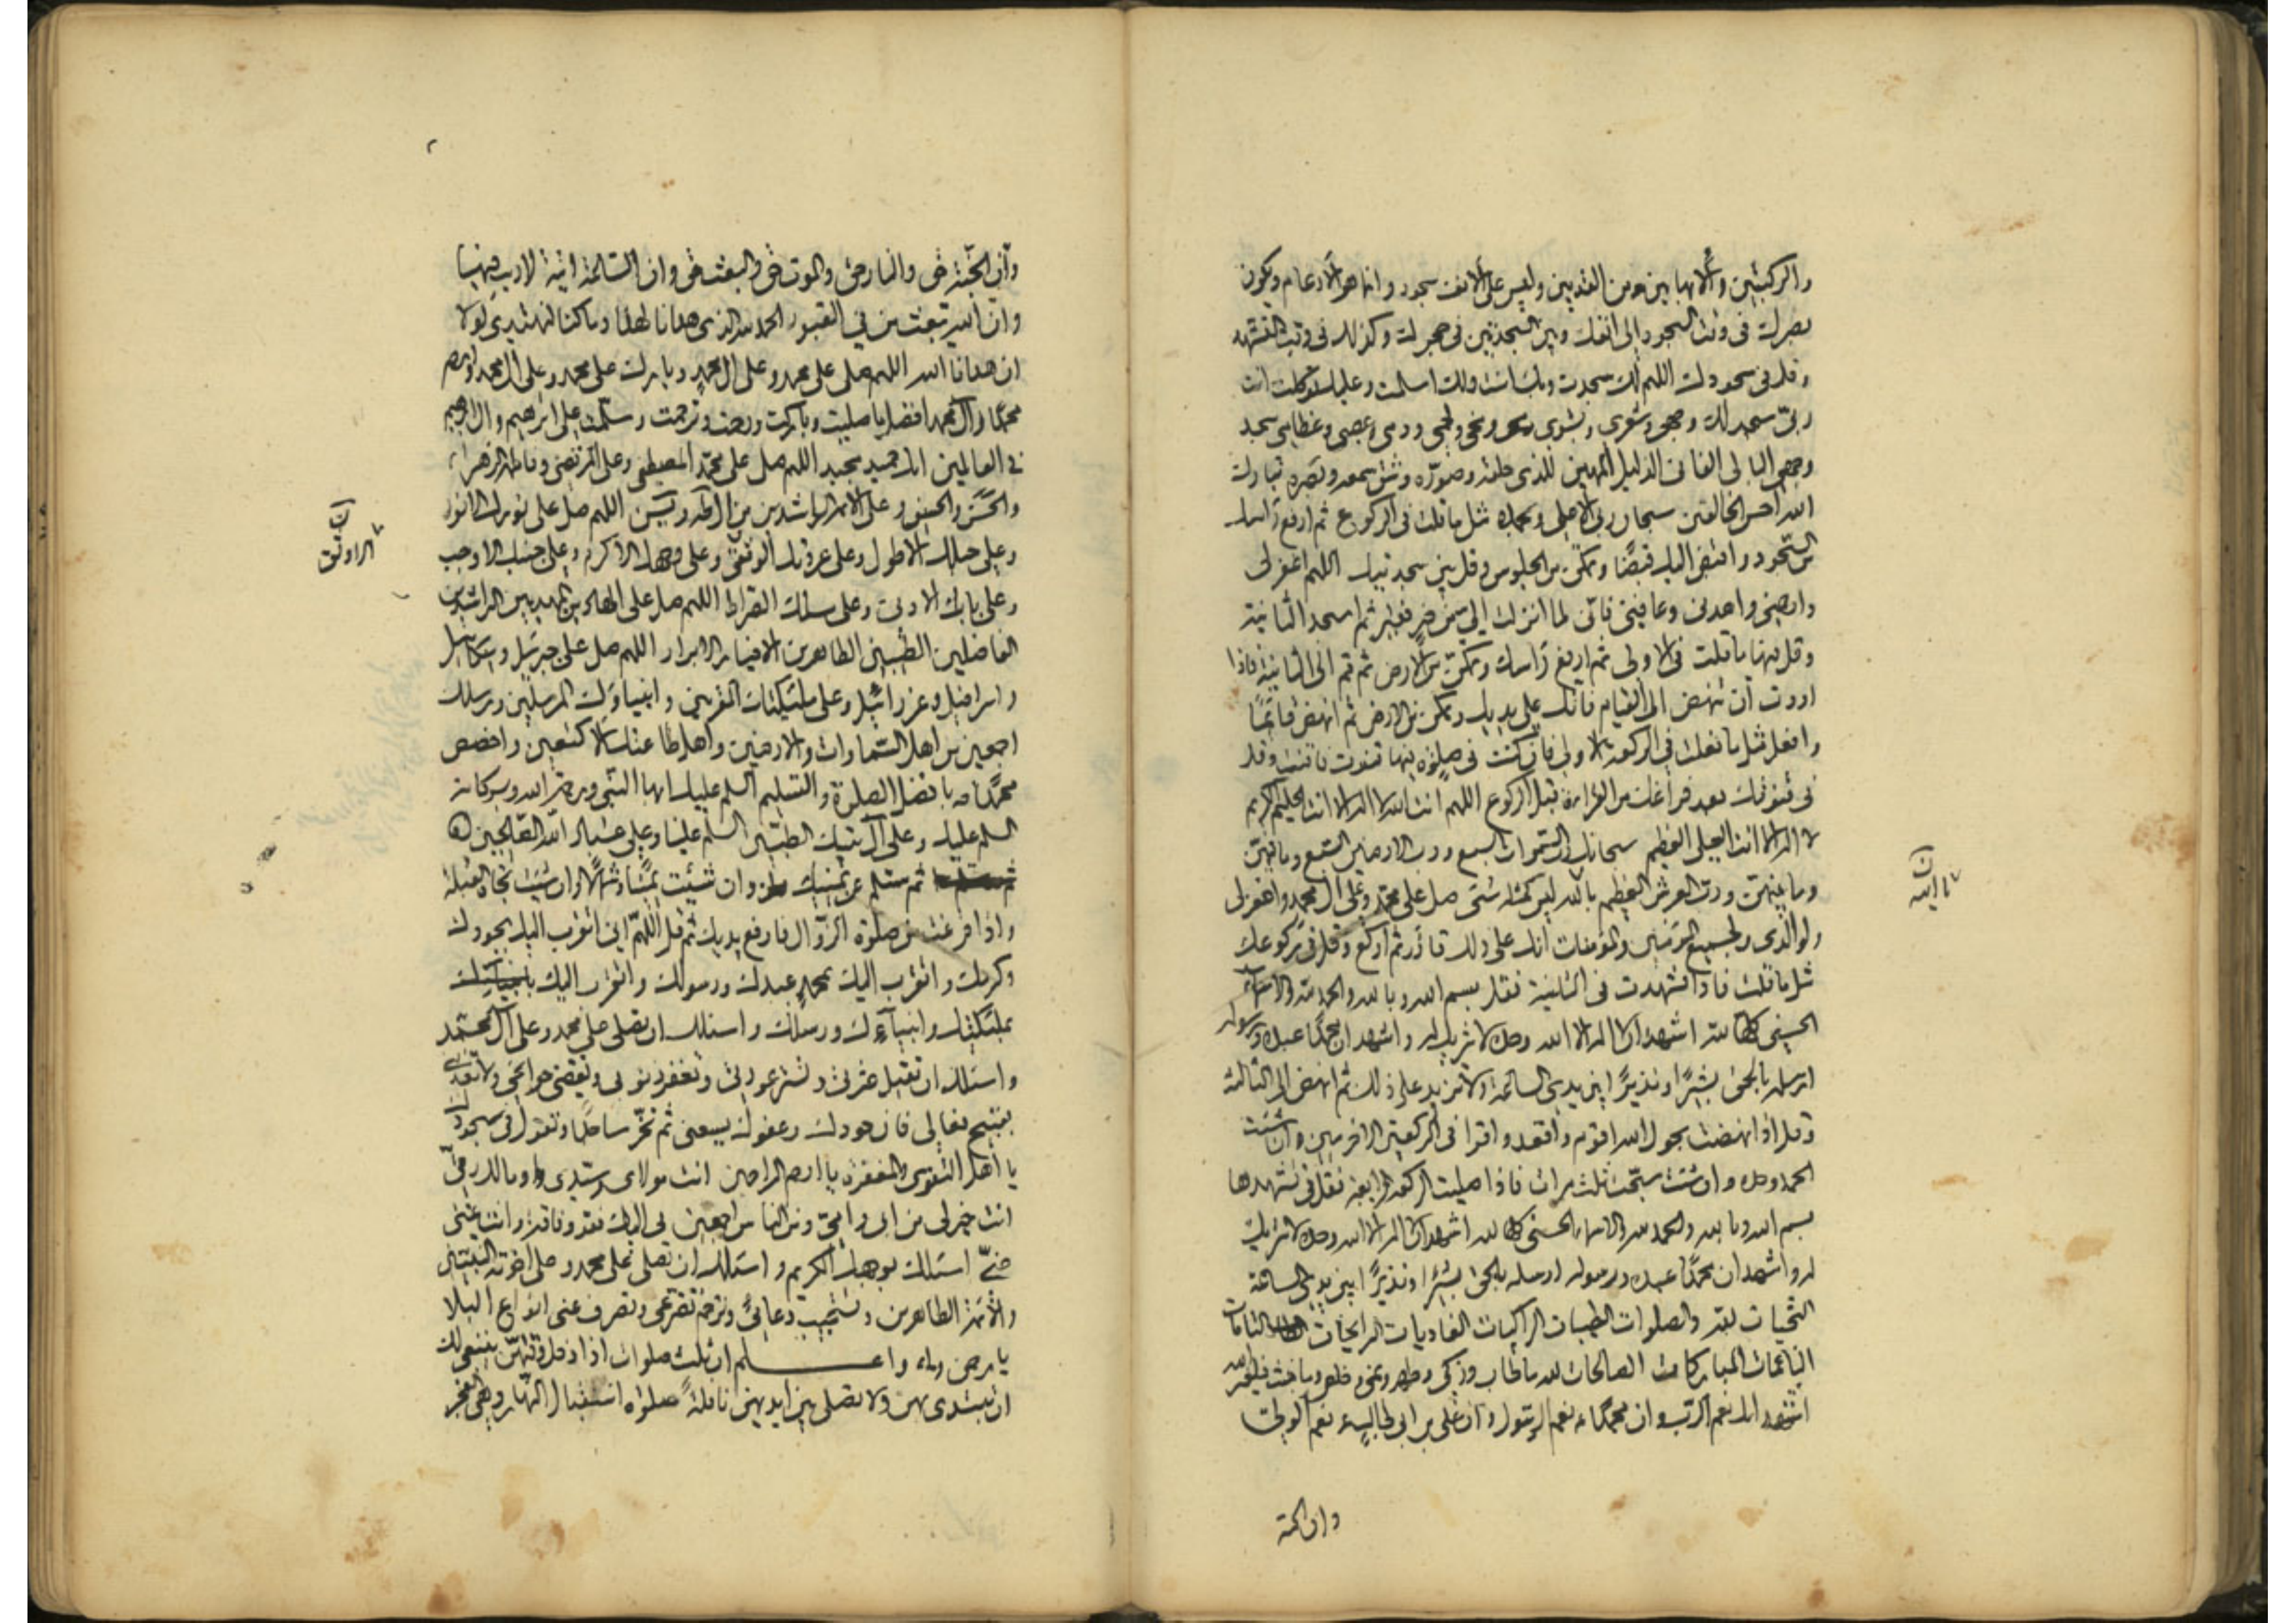 والركبتين والابهامين من القدمين وليس على الانف سجود وانما هو الارغام ويكون
بصرك فى وقت السجود الى انفك وبين السجدتين فى حجرك وكذلك فى وقت التشهد
وقل فى سجودك اللهم لك سجدت وبك امنت ولك اسلمت وعليك توكلت انت
ربى سجد لك وجهى وشعرى وبشرى ومخى ولحمى ودمى وعصبى وعظامى سجد
وجهى البالى الفانى الذليل المهين للذى خلقه وصوره وشق سمعه وبصره تبارك
الله احسن الخالقين سبحان ربى الاعلى وبحمده مثل ما قلت فى الركوع ثم ارفع راسك
من السجود واقبض اليك قبضا وتمكن من الجلوس وقل بين سجدتيك اللهم اغفر لى
وارحمنى واهدنى وعافنى فانى لما انزلت الى من خير فقير ثم اسجد الثانية
وقل فيها ما قلت فى الاولى ثم ارفع راسك وتمكن من الارض ثم قم الى الثانية فاذا
اردت ان تنهض الى القيام فاتك على يديك وتمكن من الارض ثم انهض قائما
وافعل مثل ما فعلت فى الركعة الاولى فان كنت فى صلوة فيها قنوت فاقنت وقل
فى قنوتك بعد فراغك من القراءة قبل الركوع اللهم انت الله لا اله الا انت الحليم الكريم
لا اله الا انت العلى العظيم سبحانك رب السموات السبع ورب الارضين السبع وما فيهن
وما بينهن ورب العرش العظيم يا الله ليس كمثله شئ صل على محمد وعلى ال محمد واغفر لى
ولوالدى ولجميع المؤمنين والمؤمنات انك على ذلك قادر ثم اركع وقل فى ركوعك
مثل ما قلت فاذا تشهدت فى الثانية فقل بسم الله وبالله والحمد لله والاسماء
الحسنى كلها لله اشهد ان لا اله الا الله وحده لا شريك له واشهد ان محمدا عبده ورسوله
ارسله بالحق بشيرا ونذيرا بين يدى الساعة ولا تزيد على ذلك ثم انهض الى الثالثة
وقل اذا نهضت بحول الله اقوم واقعد واقرا فى الركعتين الاخريين وان شئت
الحمد وحده وان شئت سبحت ثلث مرات فاذا صليت الركعة الرابعة فقل فى تشهدها
بسم الله وبالله والحمد لله والاسماء الحسنى كلها لله اشهد ان لا اله الا الله وحده لا شريك
له واشهد ان محمدا عبده ورسوله ارسله بالحق بشيرا ونذيرا بين يدى الساعة
التحيات لله والصلوات الطيبات الزاكيات الغاديات الرايحات التامات
الناعمات المباركات الصالحات لله ما طاب وزكى وطهر ونمى وخلص وما خبث فلغير الله
اشهد انك نعم الرب وان محمدا نعم الرسول وان على بن ابى طالب نعم الولى
وان الجنة
وان الجنة حق والنار حق والموت حق والبعث حق وان الساعة اتية لا ريب فيها
وان الله يبعث من فى القبور الحمد لله الذى هدانا لهذا وما كنا لنهتدى لولا
ان هدانا الله اللهم صل على محمد وعلى ال محمد وبارك على محمد وعلى ال محمد وارحم
محمدا وال محمد افضل ما صليت وباركت ورحمت وترحمت وسلمت على ابرهيم وال ابرهيم
فى العالمين انك حميد مجيد اللهم صل على محمد المصطفى وعلى المرتضى وفاطمة الزهراء
والحسن والحسين وعلى الائمة الراشدين من ال طه ويس اللهم صل على نورك الانور
وعلى حبلك الاطول وعلى عروتك الوثقى وعلى وجهك الاكرم وعلى جنبك الاوجب
وعلى بابك الادنى وعلى مسلك الصراط اللهم صل على الهادين المهديين الراشدين
الفاضلين الطيبين الطاهرين الاخيار الابرار اللهم صل على جبرئيل وميكائيل
واسرافيل وعزرائيل وعلى ملئكتك المقربين وانبياؤك المرسلين ورسلك
اجمعين من اهل السماوات والارضين واهل طاعتك اكتعين واخصص
محمدا بافضل الصلوة والتسليم السلم عليك ايها النبى ورحمة الله وبركاته
السلم عليك وعلى ال بيتك الطيبين السلم علينا وعلى عباد الله الصالحين
ثم سلم عن يمينك وان شئت يمينا وشمالا وان شئت تجاه القبلة
واذا فرغت من صلوة الزوال فارفع يديك ثم قل اللهم انى اتقرب اليك بجودك
وكرمك واتقرب اليك بمحمد عبدك ورسولك واتقرب اليك
بملئكتك وانبياءك ورسلك واسئلك ان تصلى على محمد وعلى ال محمد
واسئلك ان تقيل عثرتى وتستر عورتى وتغفر ذنوبى وتقضى حوائجى ولا تعذبنى
بقبيح فعالى فان جودك وعفوك يسعنى ثم تخر ساجدا وتقول فى سجودك
يا اهل التقوى والمغفرة يا ارحم الراحمين انت مولاى وسيدى ومالك رقى
انت خير لى من ابى وامى ومن الناس اجمعين بى اليك فقر وفاقة وانت غنى
عنى اسئلك بوجهك الكريم واسئلك ان تصلى على محمد وعلى اخوته النبيين
والائمة الطاهرين وتستجيب دعائى وترحم تضرعى وتصرف عنى انواع البلا
يا رحمن واعلم ان ثلث صلوات اذا دخل وقتهن ينبغى لك
ان تبتدى بهن ولا تصلى بين ايديهن نافلة صلوة استقبال النهار وهى الفجر